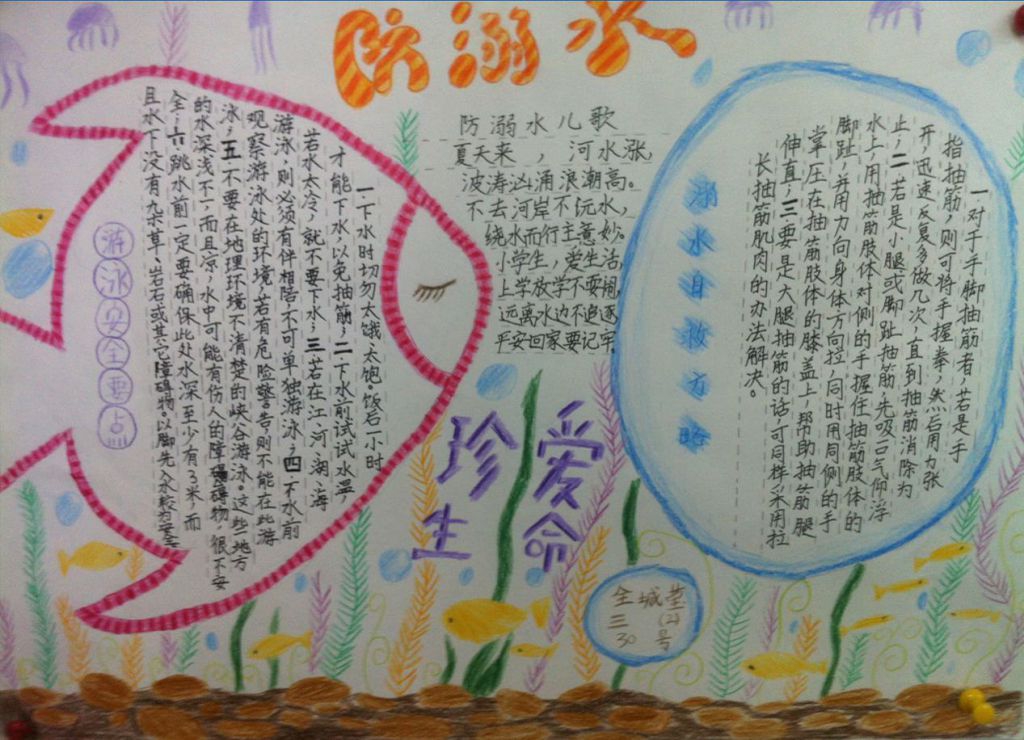 防溺水
防溺水儿歌
夏天来，河水涨，
波涛汹涌浪潮高。
不去河岸不玩水，
绕水而行主意妙。
小学生，爱生活，
上学放学不要拐，
远离水边不追逐
平安回家要记牢。
游泳安全要点
一下水时切勿太饿、太饱。饭后一小时
才能下水，以免抽筋；二下水前试试水温
若水太冷，就不要下水；三若在江、河、湖、海
游泳，则必须有伴相陪不可单独游泳；四下水前
观察游泳处的环境若有危险警告则不能在此游
泳；五不要在地理环境不清楚的峡谷游泳。这些地方
的水深浅不一而且凉，水中可能有伤人的障碍物，很不安
全；六跳水前一定要确保此处水深至少有3米，而
且水下没有杂草、岩石或其它障碍物以脚先入水较为安全
溺水自救方略
一对于手脚抽筋者，若是手
指抽筋，则可将手握拳，然后用力张
开，迅速反复多做几次，直到抽筋消除为
止；二若是小腿或脚趾抽筋，先吸口气仰浮
水上，用抽筋肢体对侧的手握住抽筋肢体的
脚趾，并用力向身体方向拉，同时用同侧的手
掌压在抽筋肢体的膝盖上，帮助抽筋腿
伸直；三要是大腿抽筋的话，可同样采用拉
长抽筋肌肉的办法解决。
珍爱
生命
三 (2)
30 号